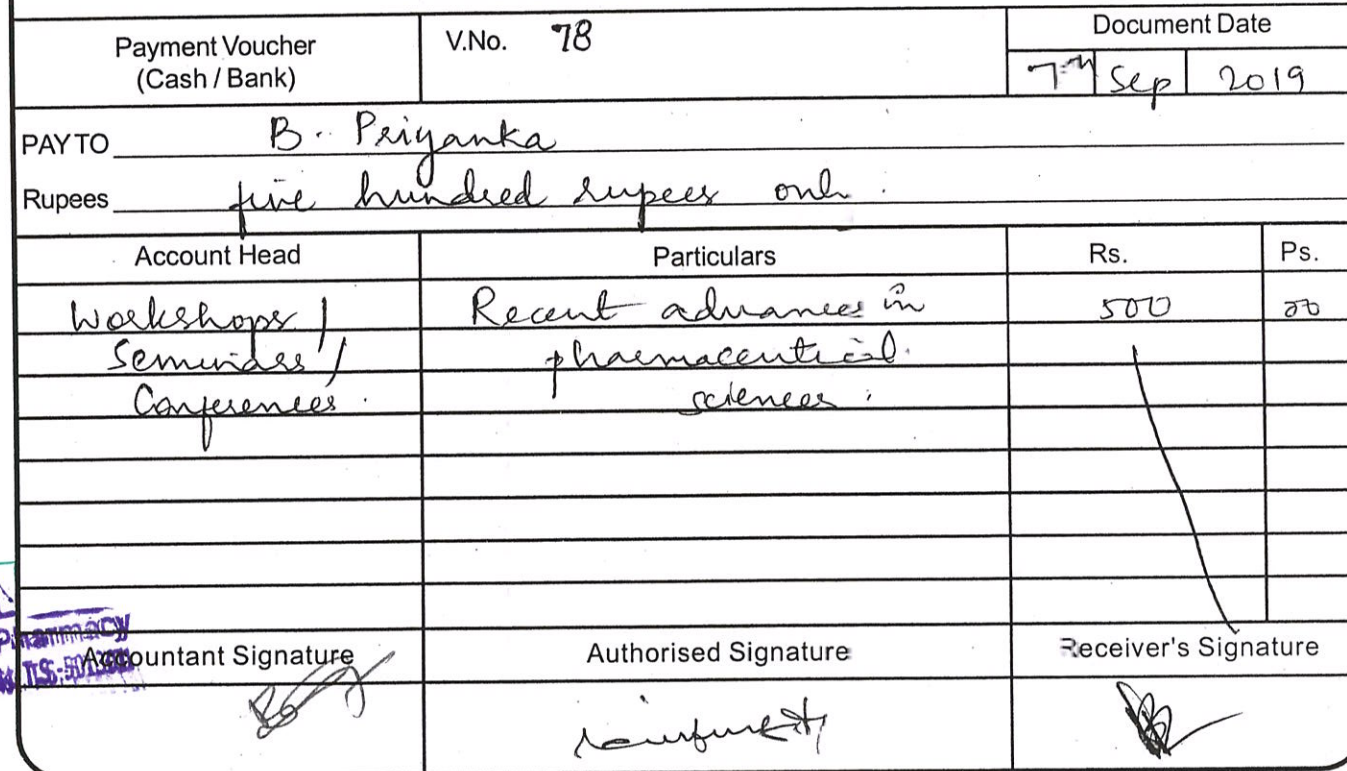 Payment Voucher
(Cash / Bank)
V.No. 78
Document Date
7th Sep 2019
PAY TO B. Priyanka
Rupees five hundred rupees only.
Account Head Particulars Rs. Ps.
Workshops/ Recent advances in 500 00
Seminars/ pharmaceutical
Conferences. sciences.
Pharmacy
Accountant Signature Authorised Signature Receiver's Signature